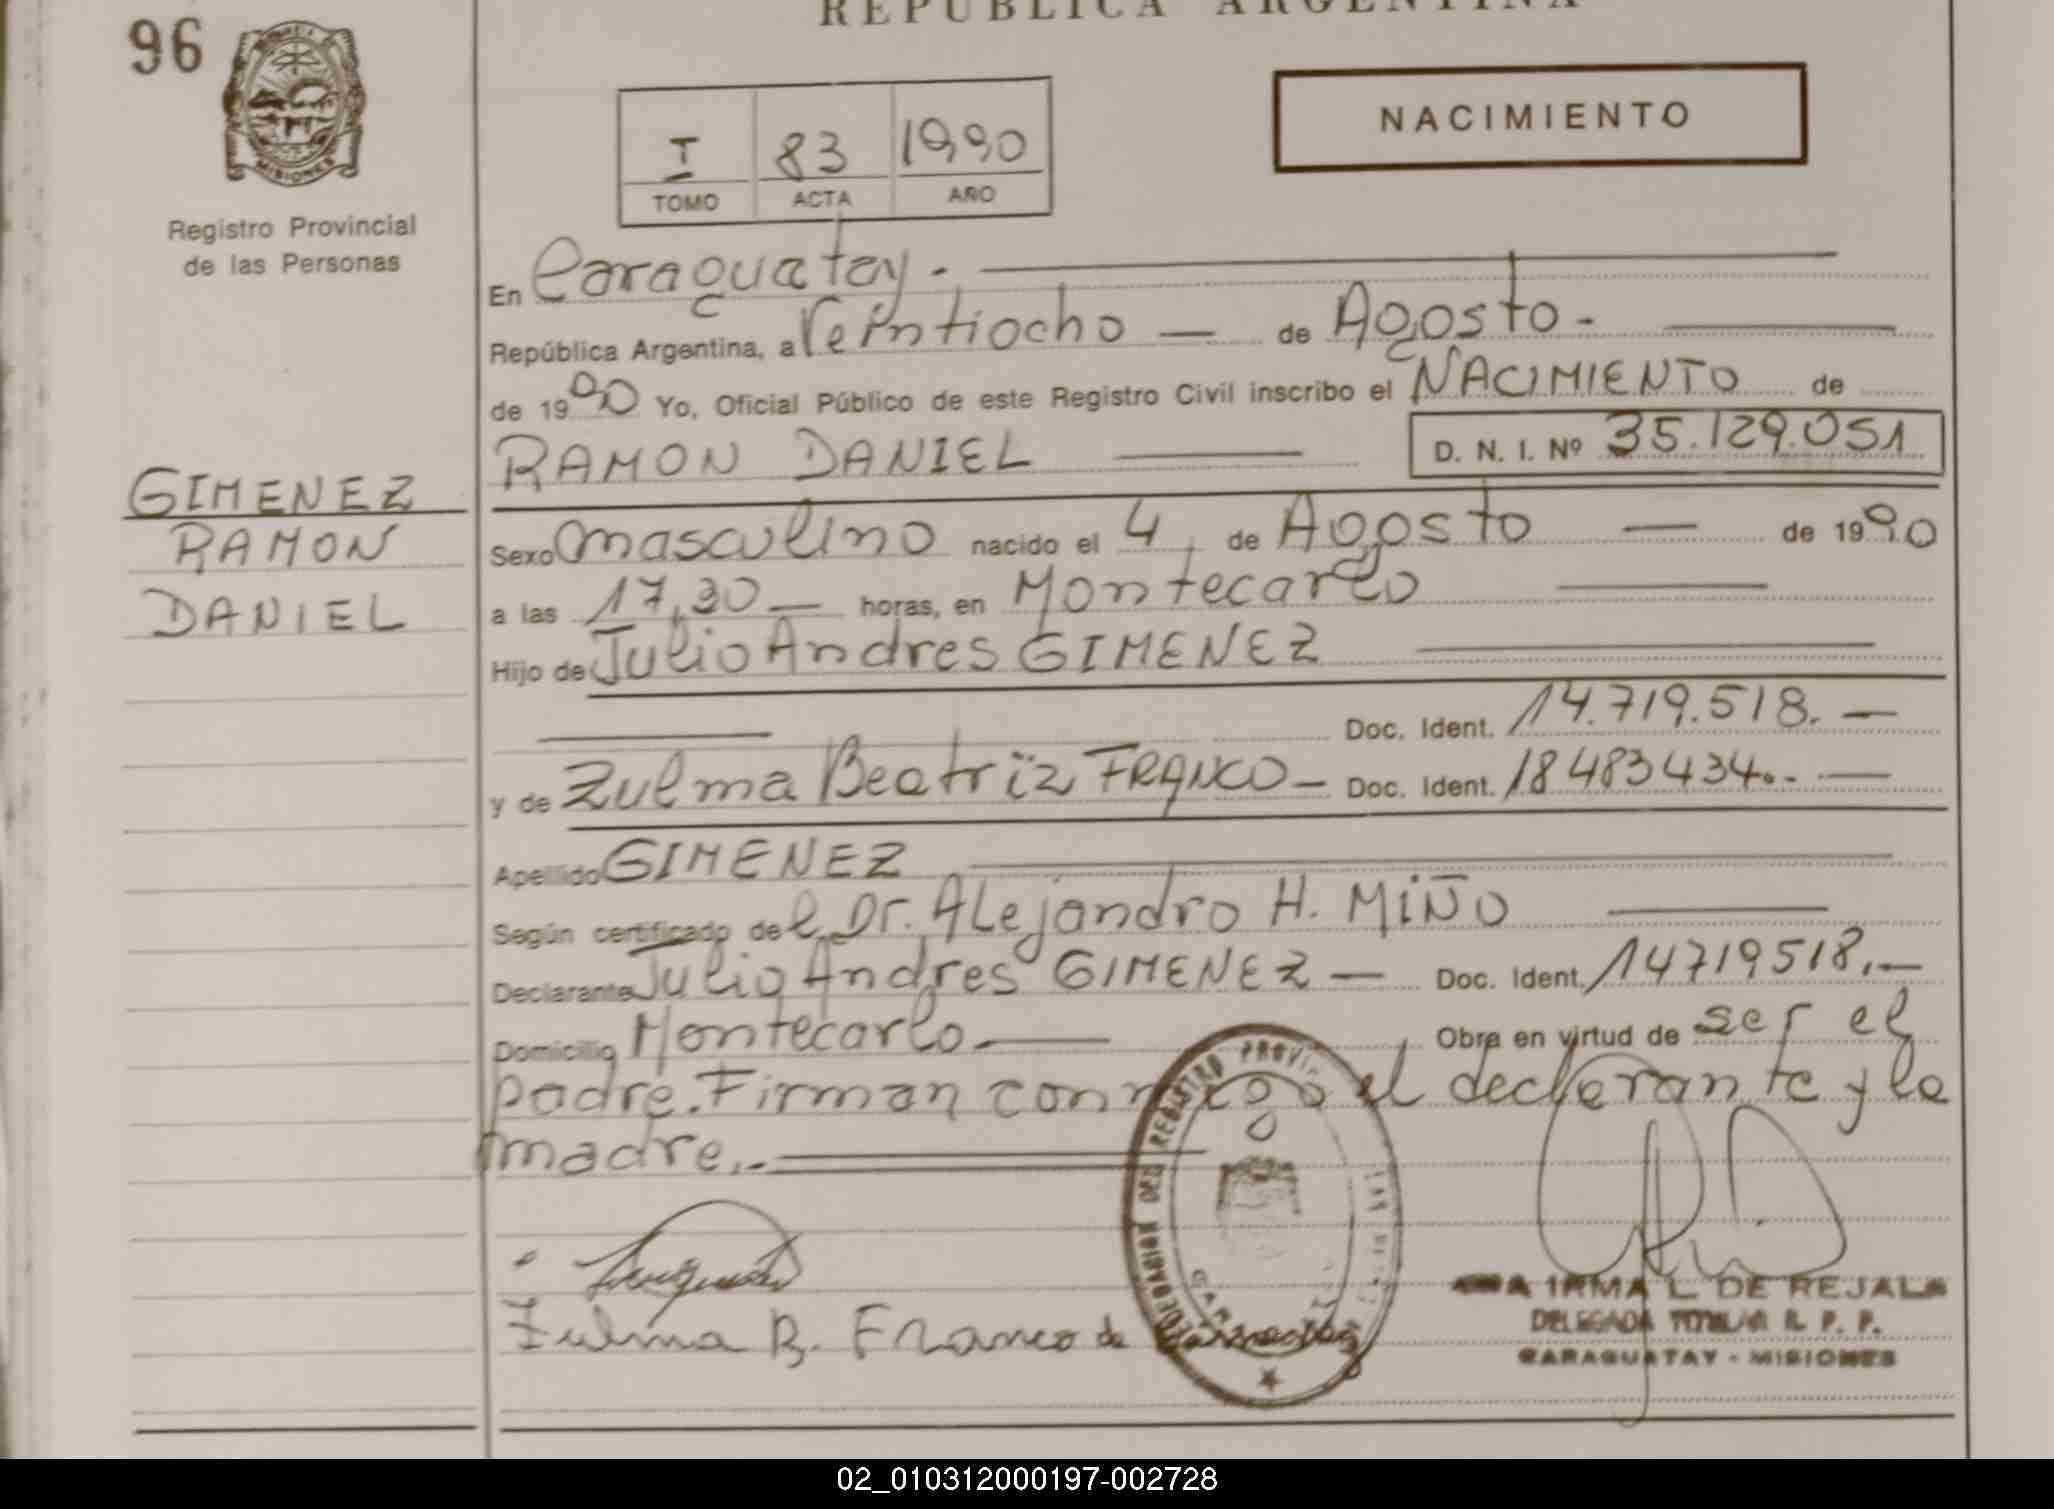 REPUBLICA ARGENTINA
96
MISIONES
Registro Provincial
de las Personas
I 83 1990
TOMO ACTA AÑO
NACIMIENTO
En Caraguatay.-
República Argentina, a Veintiocho — de Agosto.-
de 1990 Yo, Oficial Público de este Registro Civil inscribo el NACIMIENTO de
RAMON DANIEL — D. N. I. Nº 35.129.051
GIMENEZ
RAMON
DANIEL
Sexo masculino nacido el 4, de Agosto — de 1990
a las 17,30 — horas, en Montecarlo —
Hijo de Julio Andres GIMENEZ —
— Doc. Ident. 14.719.518.—
y de Zulma Beatriz FRANCO — Doc. Ident. 18483434..—
Apellido GIMENEZ —
Según certificado del Dr. Alejandro H. MIÑO —
Declarante Julio Andres GIMENEZ — Doc. Ident. 14719518.—
Domicilio Montecarlo.— Obra en virtud de ser el
padre. Firman conmigo el declarante y la
madre.-
Zulma B. Franco de
IRMA L. DE REJALA
DELEGADA TITULAR R. P. P.
CARAGUATAY - MISIONES
02_010312000197-002728